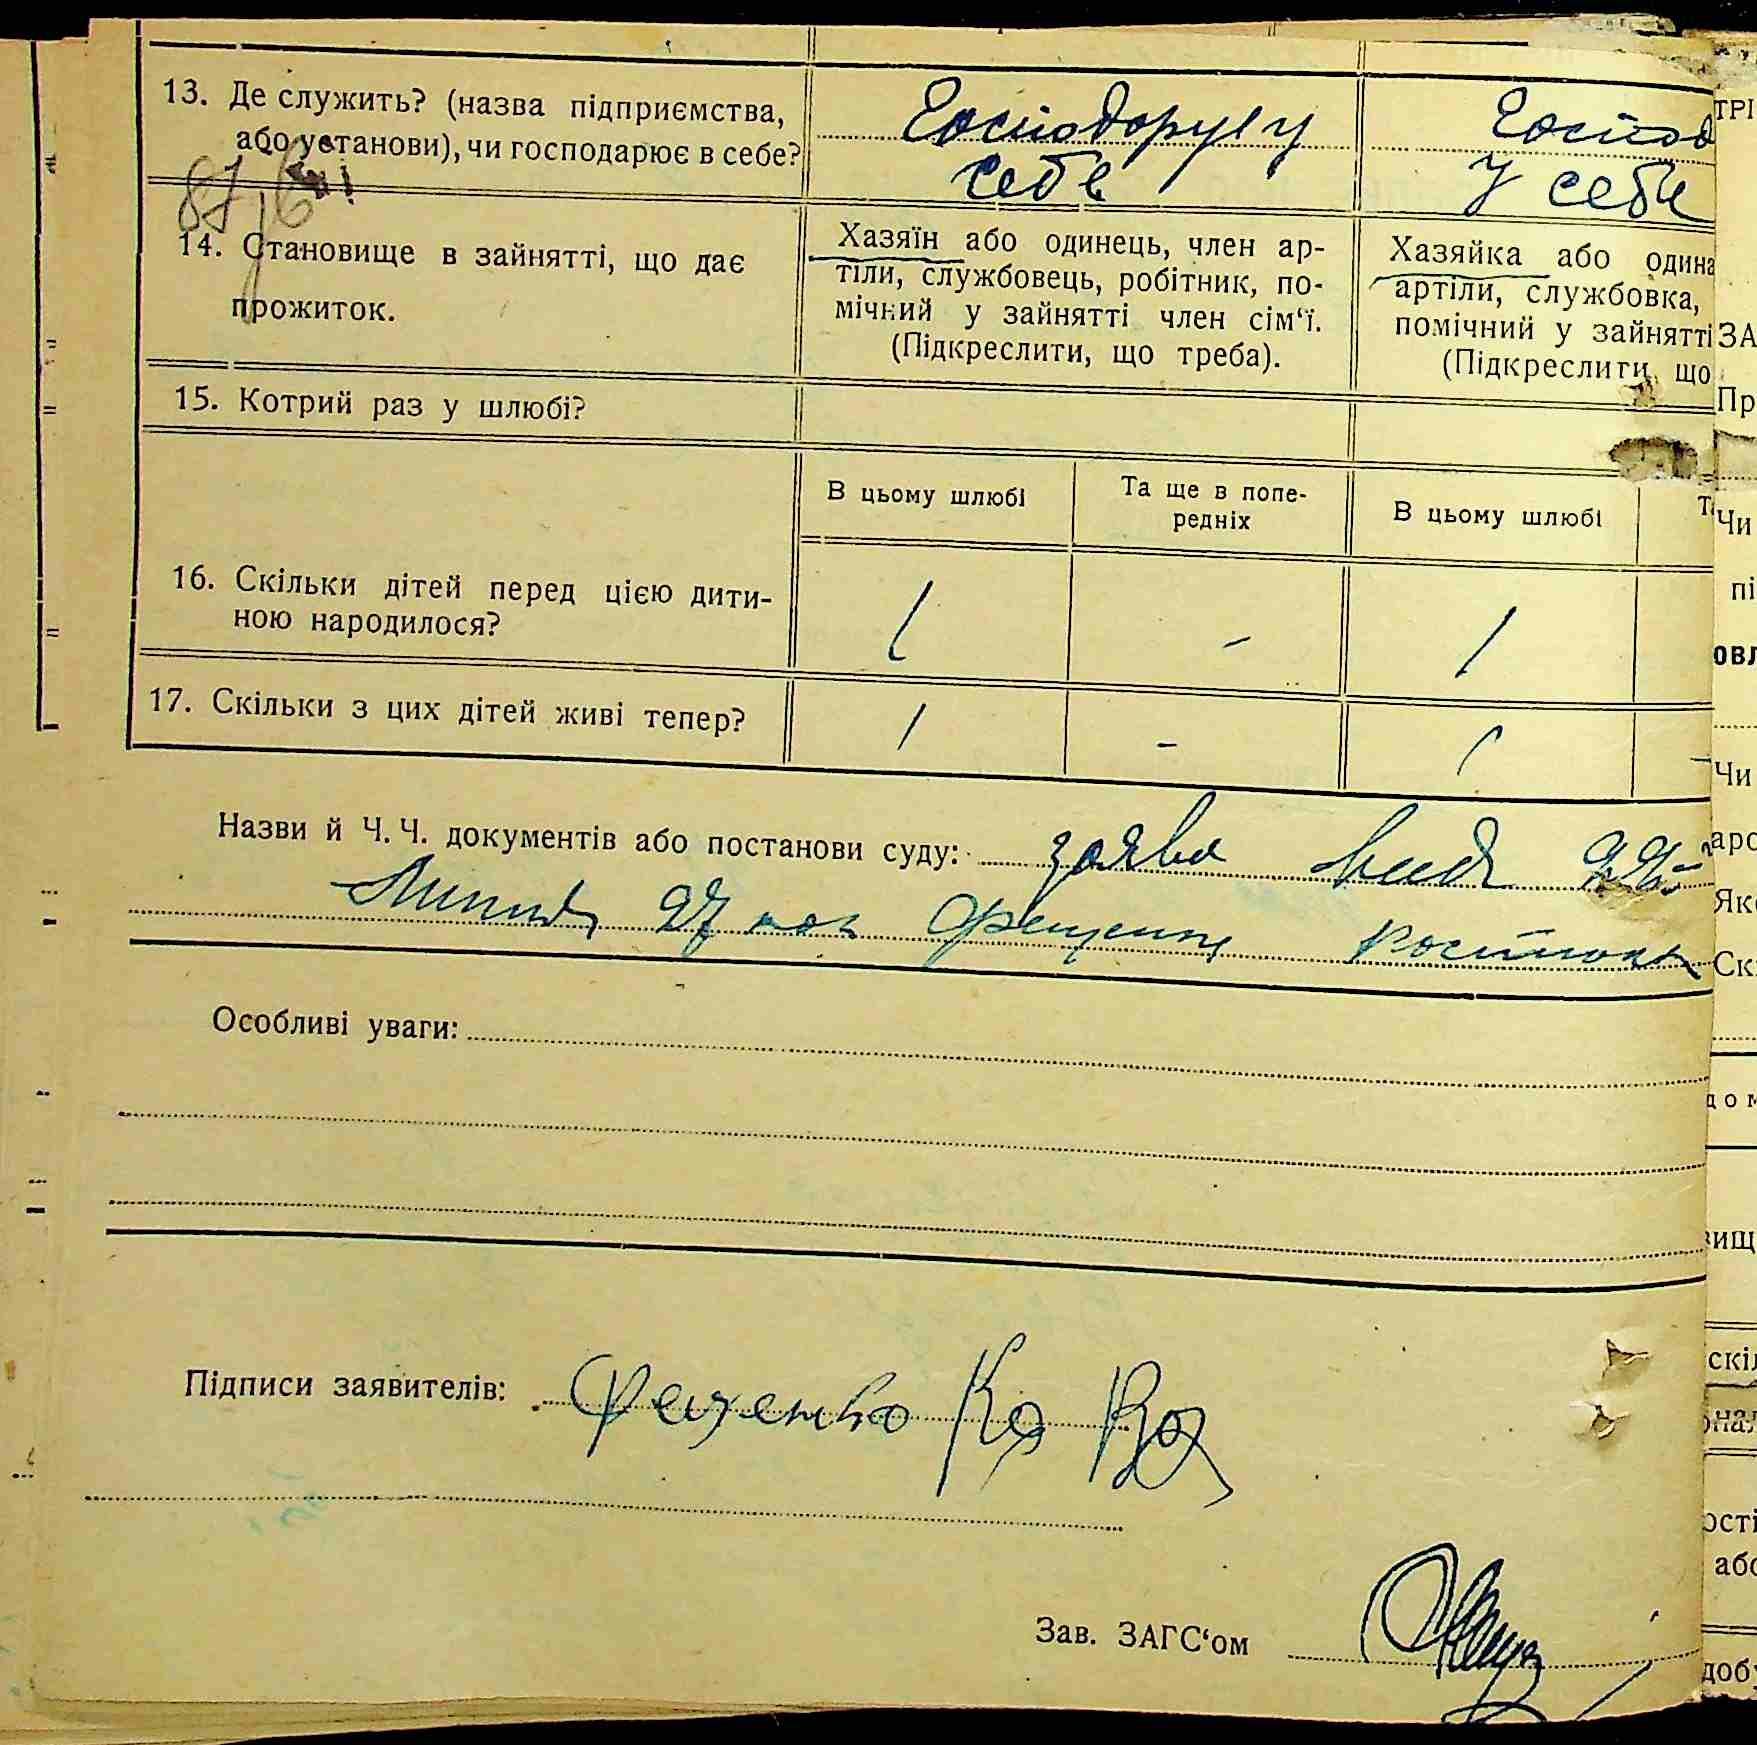 13. Де служить? (назва підприємства, або установи), чи господарює в себе?
Господорує у себе
Господ у себе
87
14. Становище в зайнятті, що дає прожиток.
Хазяїн або одинець, член ар-
тіли, службовець, робітник, по-
мічний у зайнятті член сім‘ї.
(Підкреслити, що треба).
Хазяйка або один
артіли, службовка,
помічний у зайнятті
(Підкреслити, що
15. Котрий раз у шлюбі?
В цьому шлюбі
Та ще в попе-
редніх
В цьому шлюбі
16. Скільки дітей перед цією дити-
ною народилося?
1 - 1
17. Скільки з цих дітей живі тепер?
1 - 1 -
Назви й Ч. Ч. документів або постанови суду: заява
27
Особливі уваги:
Підписи заявителів:
Зав. ЗАГС‘ом
ТРІ
ЗА
Пр
Чи
пі
овл
Чи
аро
Як
Ск
дом
вищ
скіл
ості
або
добу